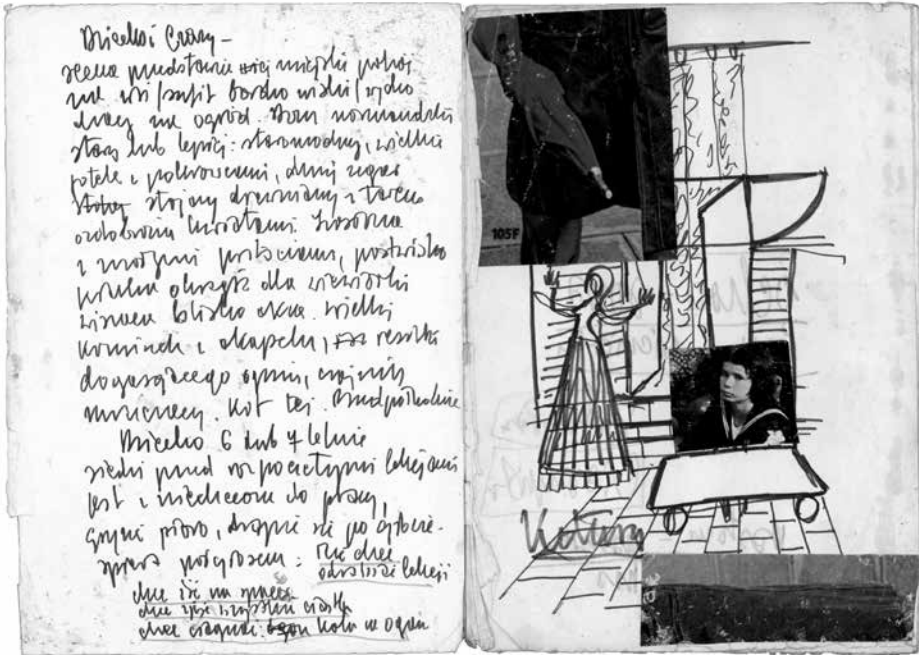 Dziecko i Czary –
scena przedstawia wiejski pokój
na wsi / sufit bardzo niski / wycho
dzący na ogród. Dom normandzki
stary lub lepiej: staromodny, wielkie
fotele z pokrowcami, duży zegar
stojący drewniany z tarczą
ozdobioną kwiatami.
z
okrągła dla wiewiórki
wisząca blisko okna. wielki
kominek z okapem, resztki
dogasającego ognia, czajnik
mruczący. Kot też.
Dziecko 6 lub 7 letnie
siedzi przed rozpoczętymi lekcjami
jest zniechęcone do pracy,
gryzie pióro, drapie się po głowie.
śpiewa półgłosem: nie chcę
odrabiać lekcji
chcę iść na spacer
chcę zjeść wszystkie ciastka
chcę ciągnąć kota za ogon
105F
Kotary